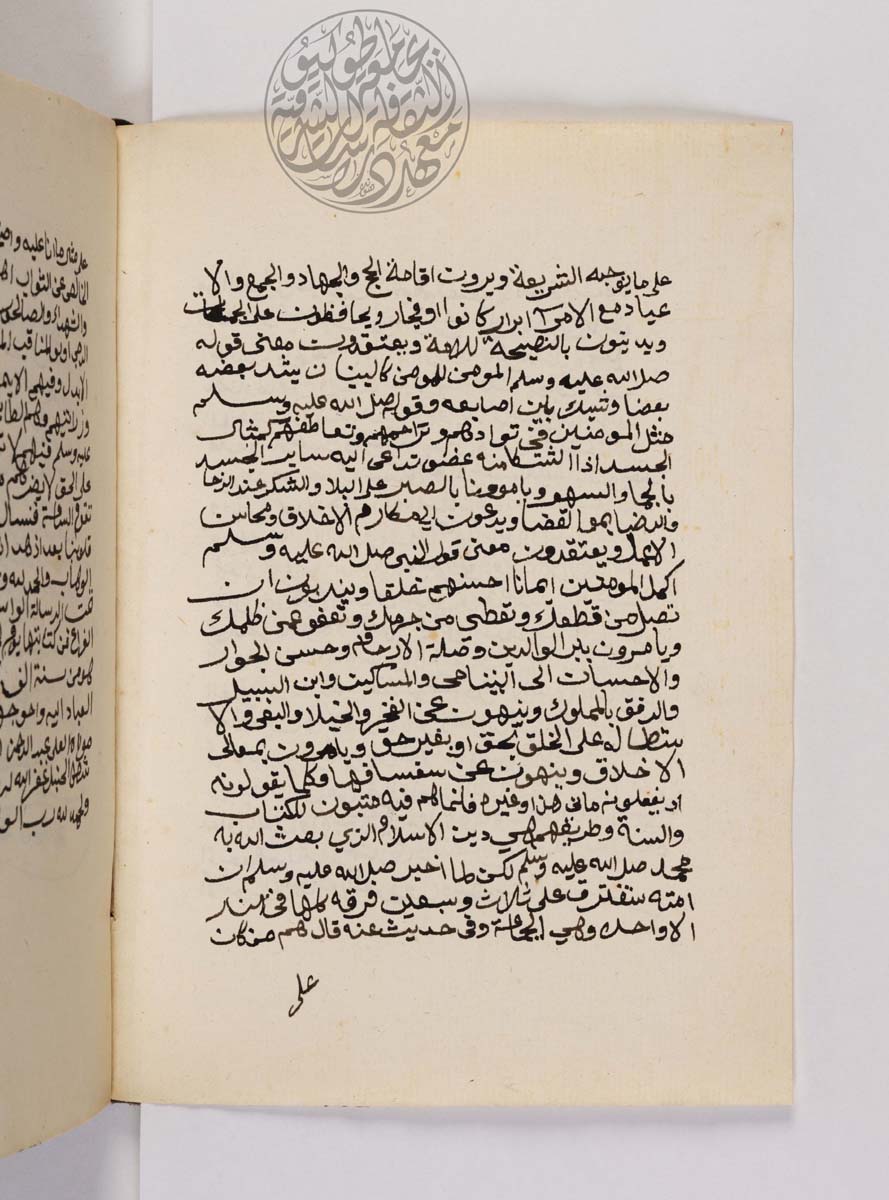 على ما يوجبه الشريعة ويرون اقامة الحج والجهاد والجمع والا
عياد مع الامرآ ابرار كانوا او فجار ويحافظون على الجماعات
ويدينون بالنصيحة للامة ويعتقدون معنى قوله
صلى الله عليه وسلم المومن للمومن كالبنيان يشد بعضه
بعضا وشبك بين اصابعه وقوله صلى الله عليه وسلم
مثل المومنين في توادهم وتراحمهم وتعاطفهم كمثال
الجسد اذا اشتكا منه عضو تداعى اليه ساير الجسد
بالحما والسهر ويامرون بالصبر على البلا والشكر عند الرخا
والرضا بمر القضا ويدعون الى مكارم الاخلاق ومحاسن
الاعمل ويعتقدون معنى قول النبي صلى الله عليه وسلم
اكمل المومنين ايمانا احسنهم خلقا ويندبون ان
تصل من قطعك وتعطي من حرمك وتعفو عمن ظلمك
ويامرون ببر الوالدين وصلة الارحام وحسن الجوار
والاحسان الى اليتامى والمساكين وابن السبيل
والرفق بالمملوك وينهون عن الفخر والخيلا والبغي والا
ستطاله على الخلق بحق او بغير حق ويامرون بمعالي
الاخلاق وينهون عن سفسافها وكلما يقولونه
او يفعلونه من هذا وغيره فانما هم فيه متبعون للكتاب
والسنة وطريقهم هي دين الاسلام الذي بعث الله به
محمد صلى الله عليه وسلم لكن لما اخبر صلى الله عليه وسلم ان
امته ستفترق على ثلاث وسبعين فرقه كلها في النار
الا واحده وهي الجماعة وفي حديث عنه قال هم من كان
على